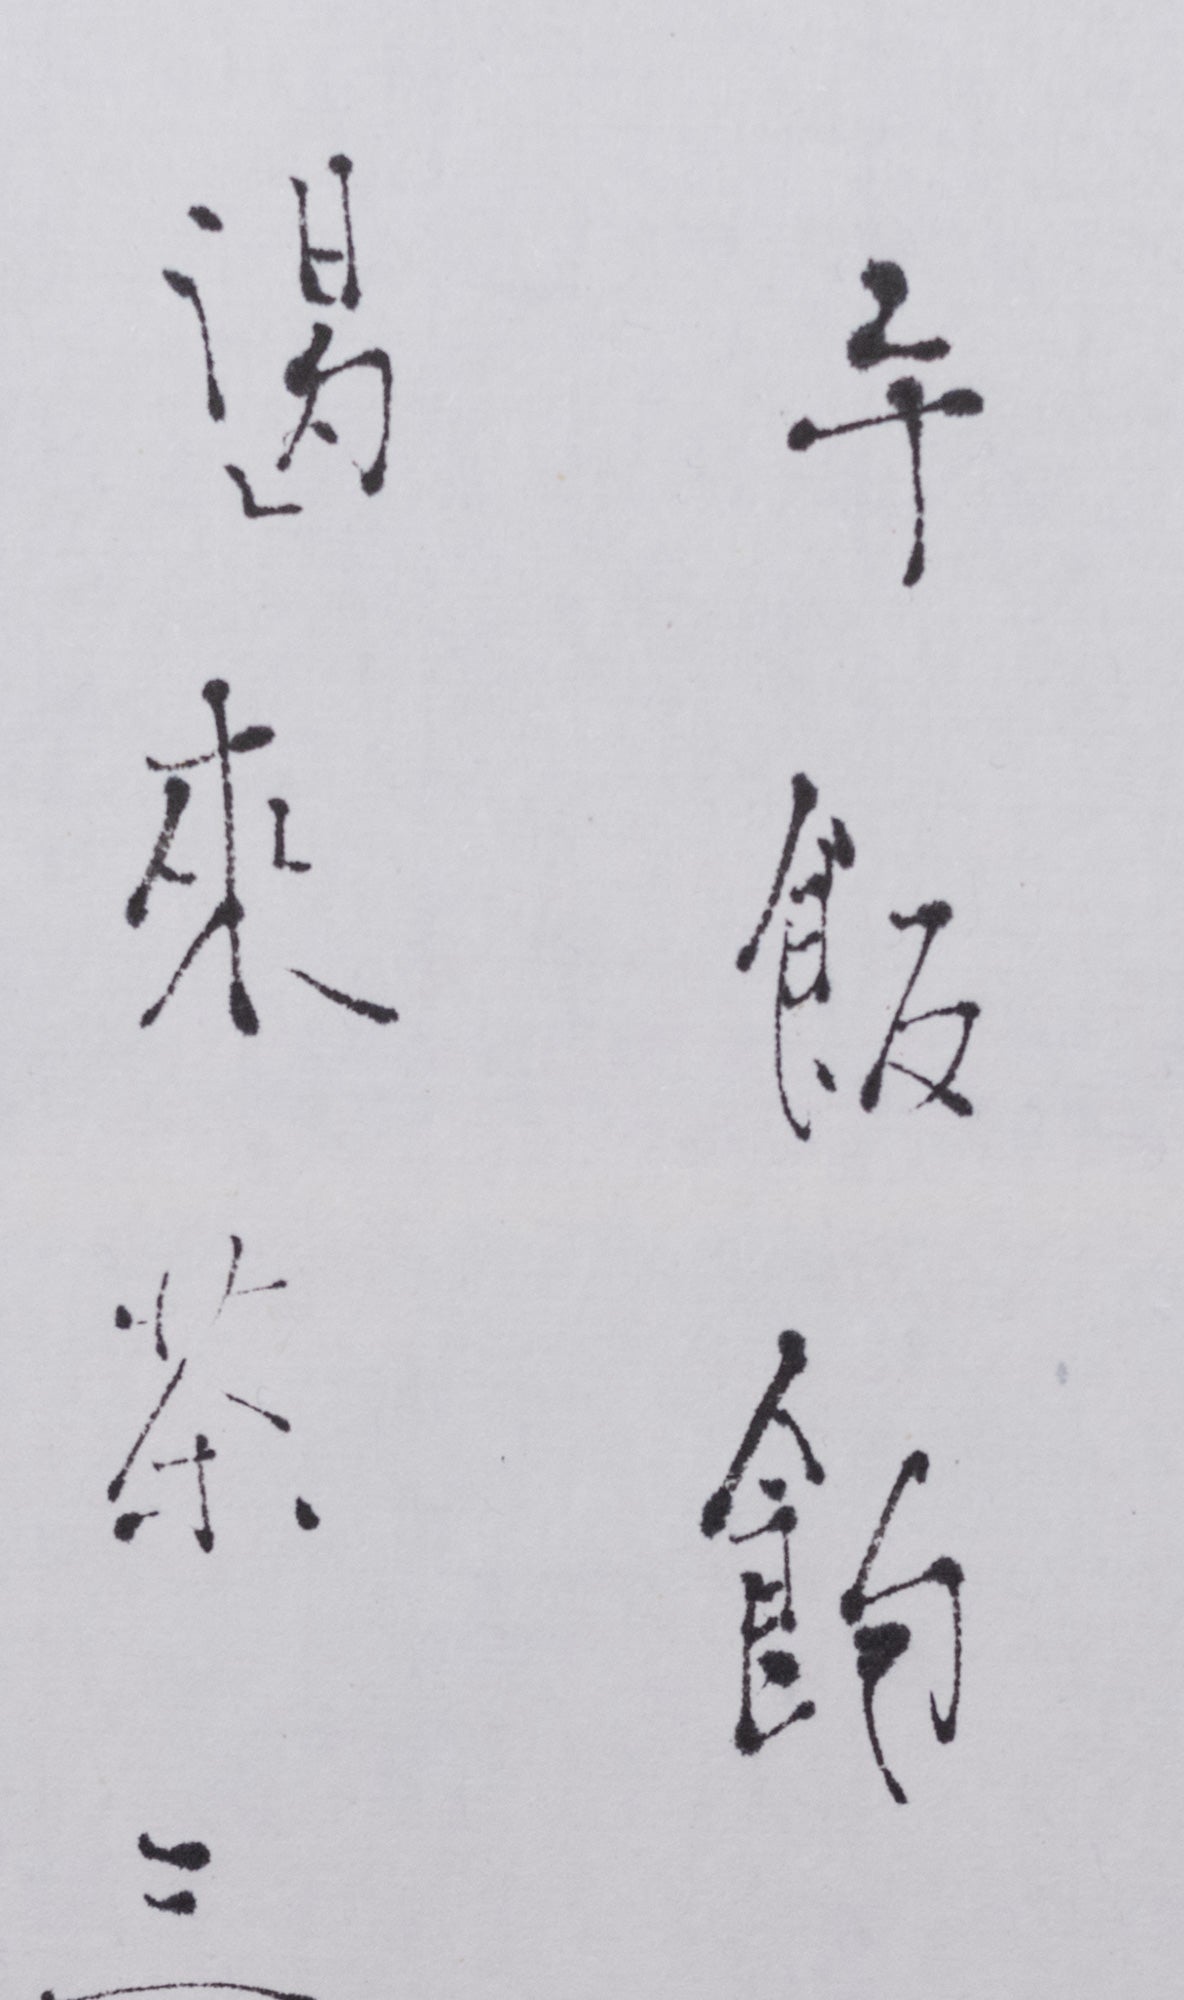 午飯飽
渴來茶三